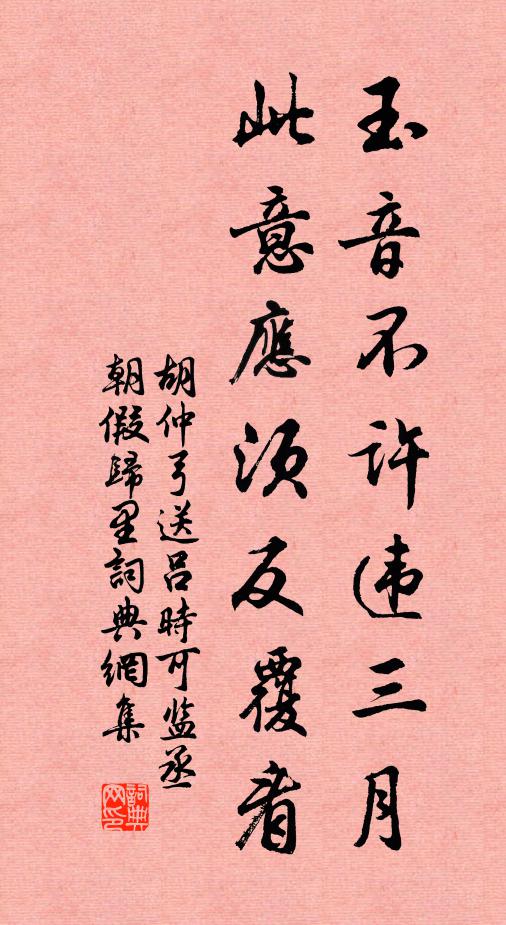 玉音不许违三月
此意應须反覆看
胡仲弓送吕時可监丞
朝假歸里詞典網集
詞典
网印